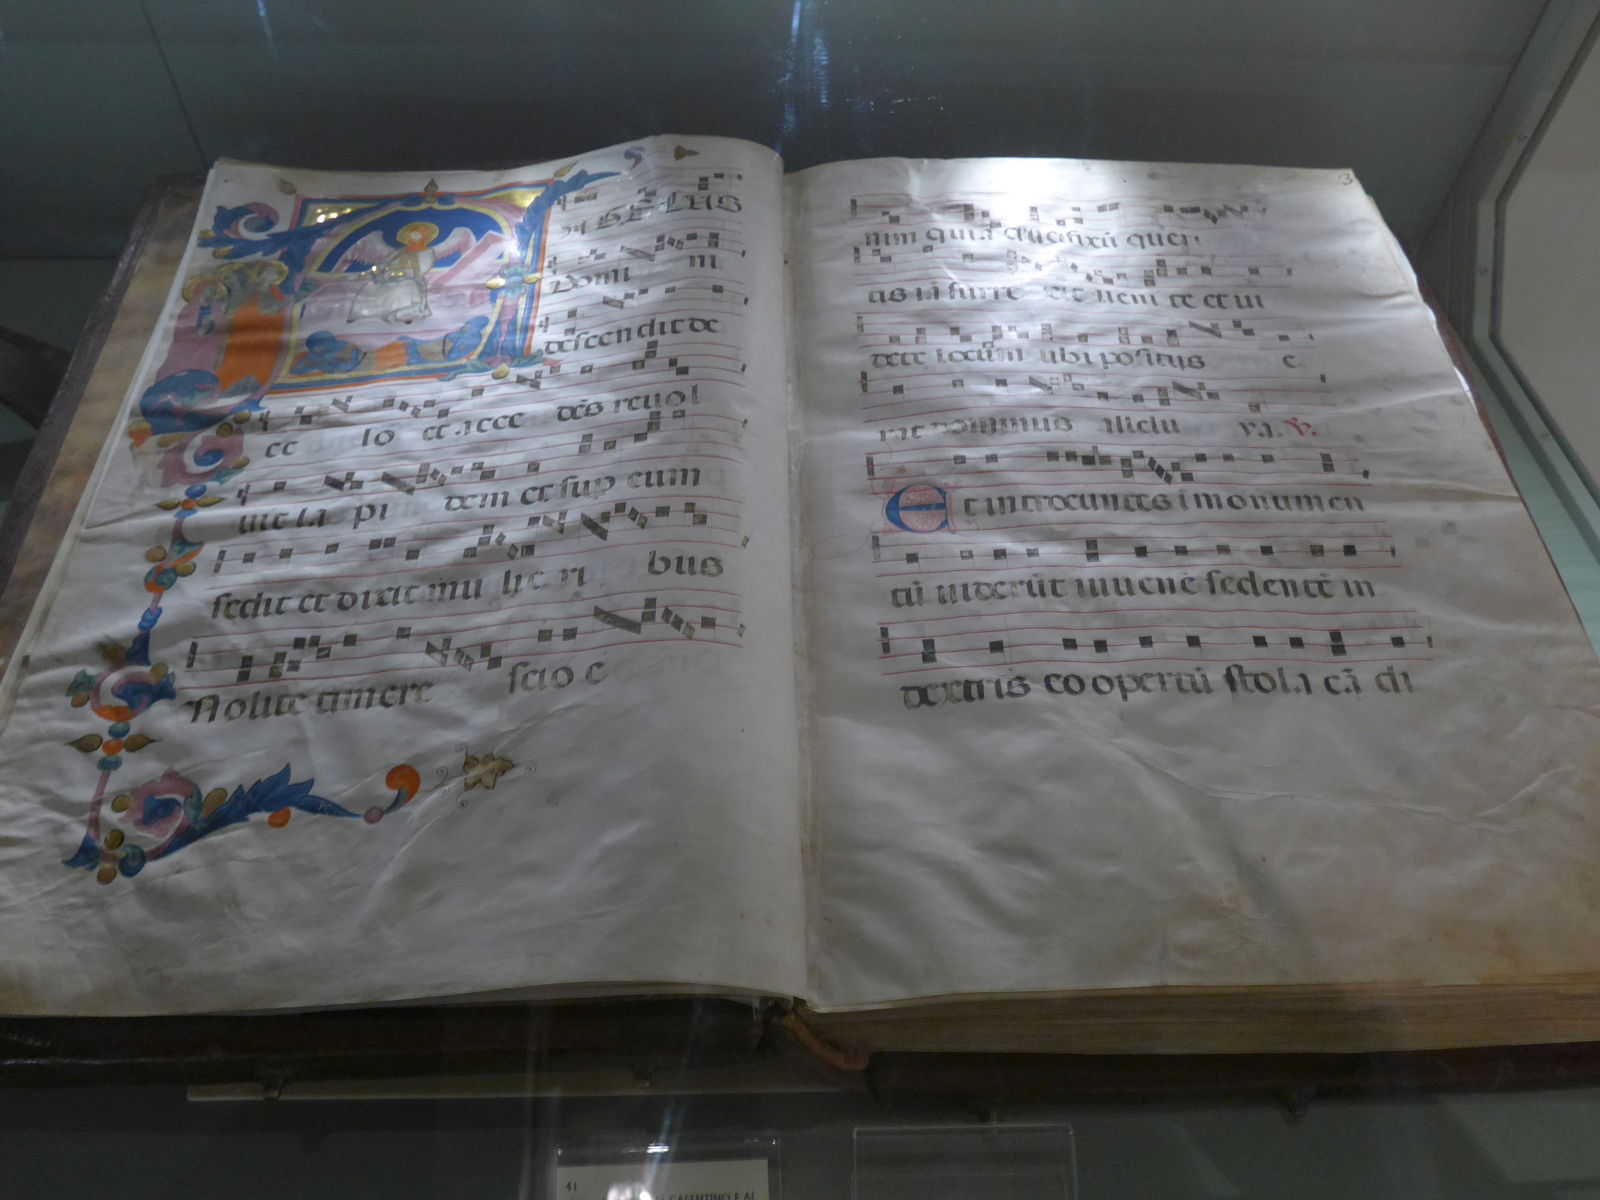 GELUS
Domi ni
descendit de
ce lo et acce dēs reuol
uit la pi dem et sup eum
sedit et dixit mu lie ri bus
Nolite timere scio e
3
nim quia crucifixū queri
tis iā surre xit ueni te et ui
dete locūm ubi positus e
rat dominus alleiu ya. ℣.
Et introeuntes ī monumen
tū uiderūt iuuenē sedentē in
dextris co opertū stola cā di
41
CASENTINO E AL